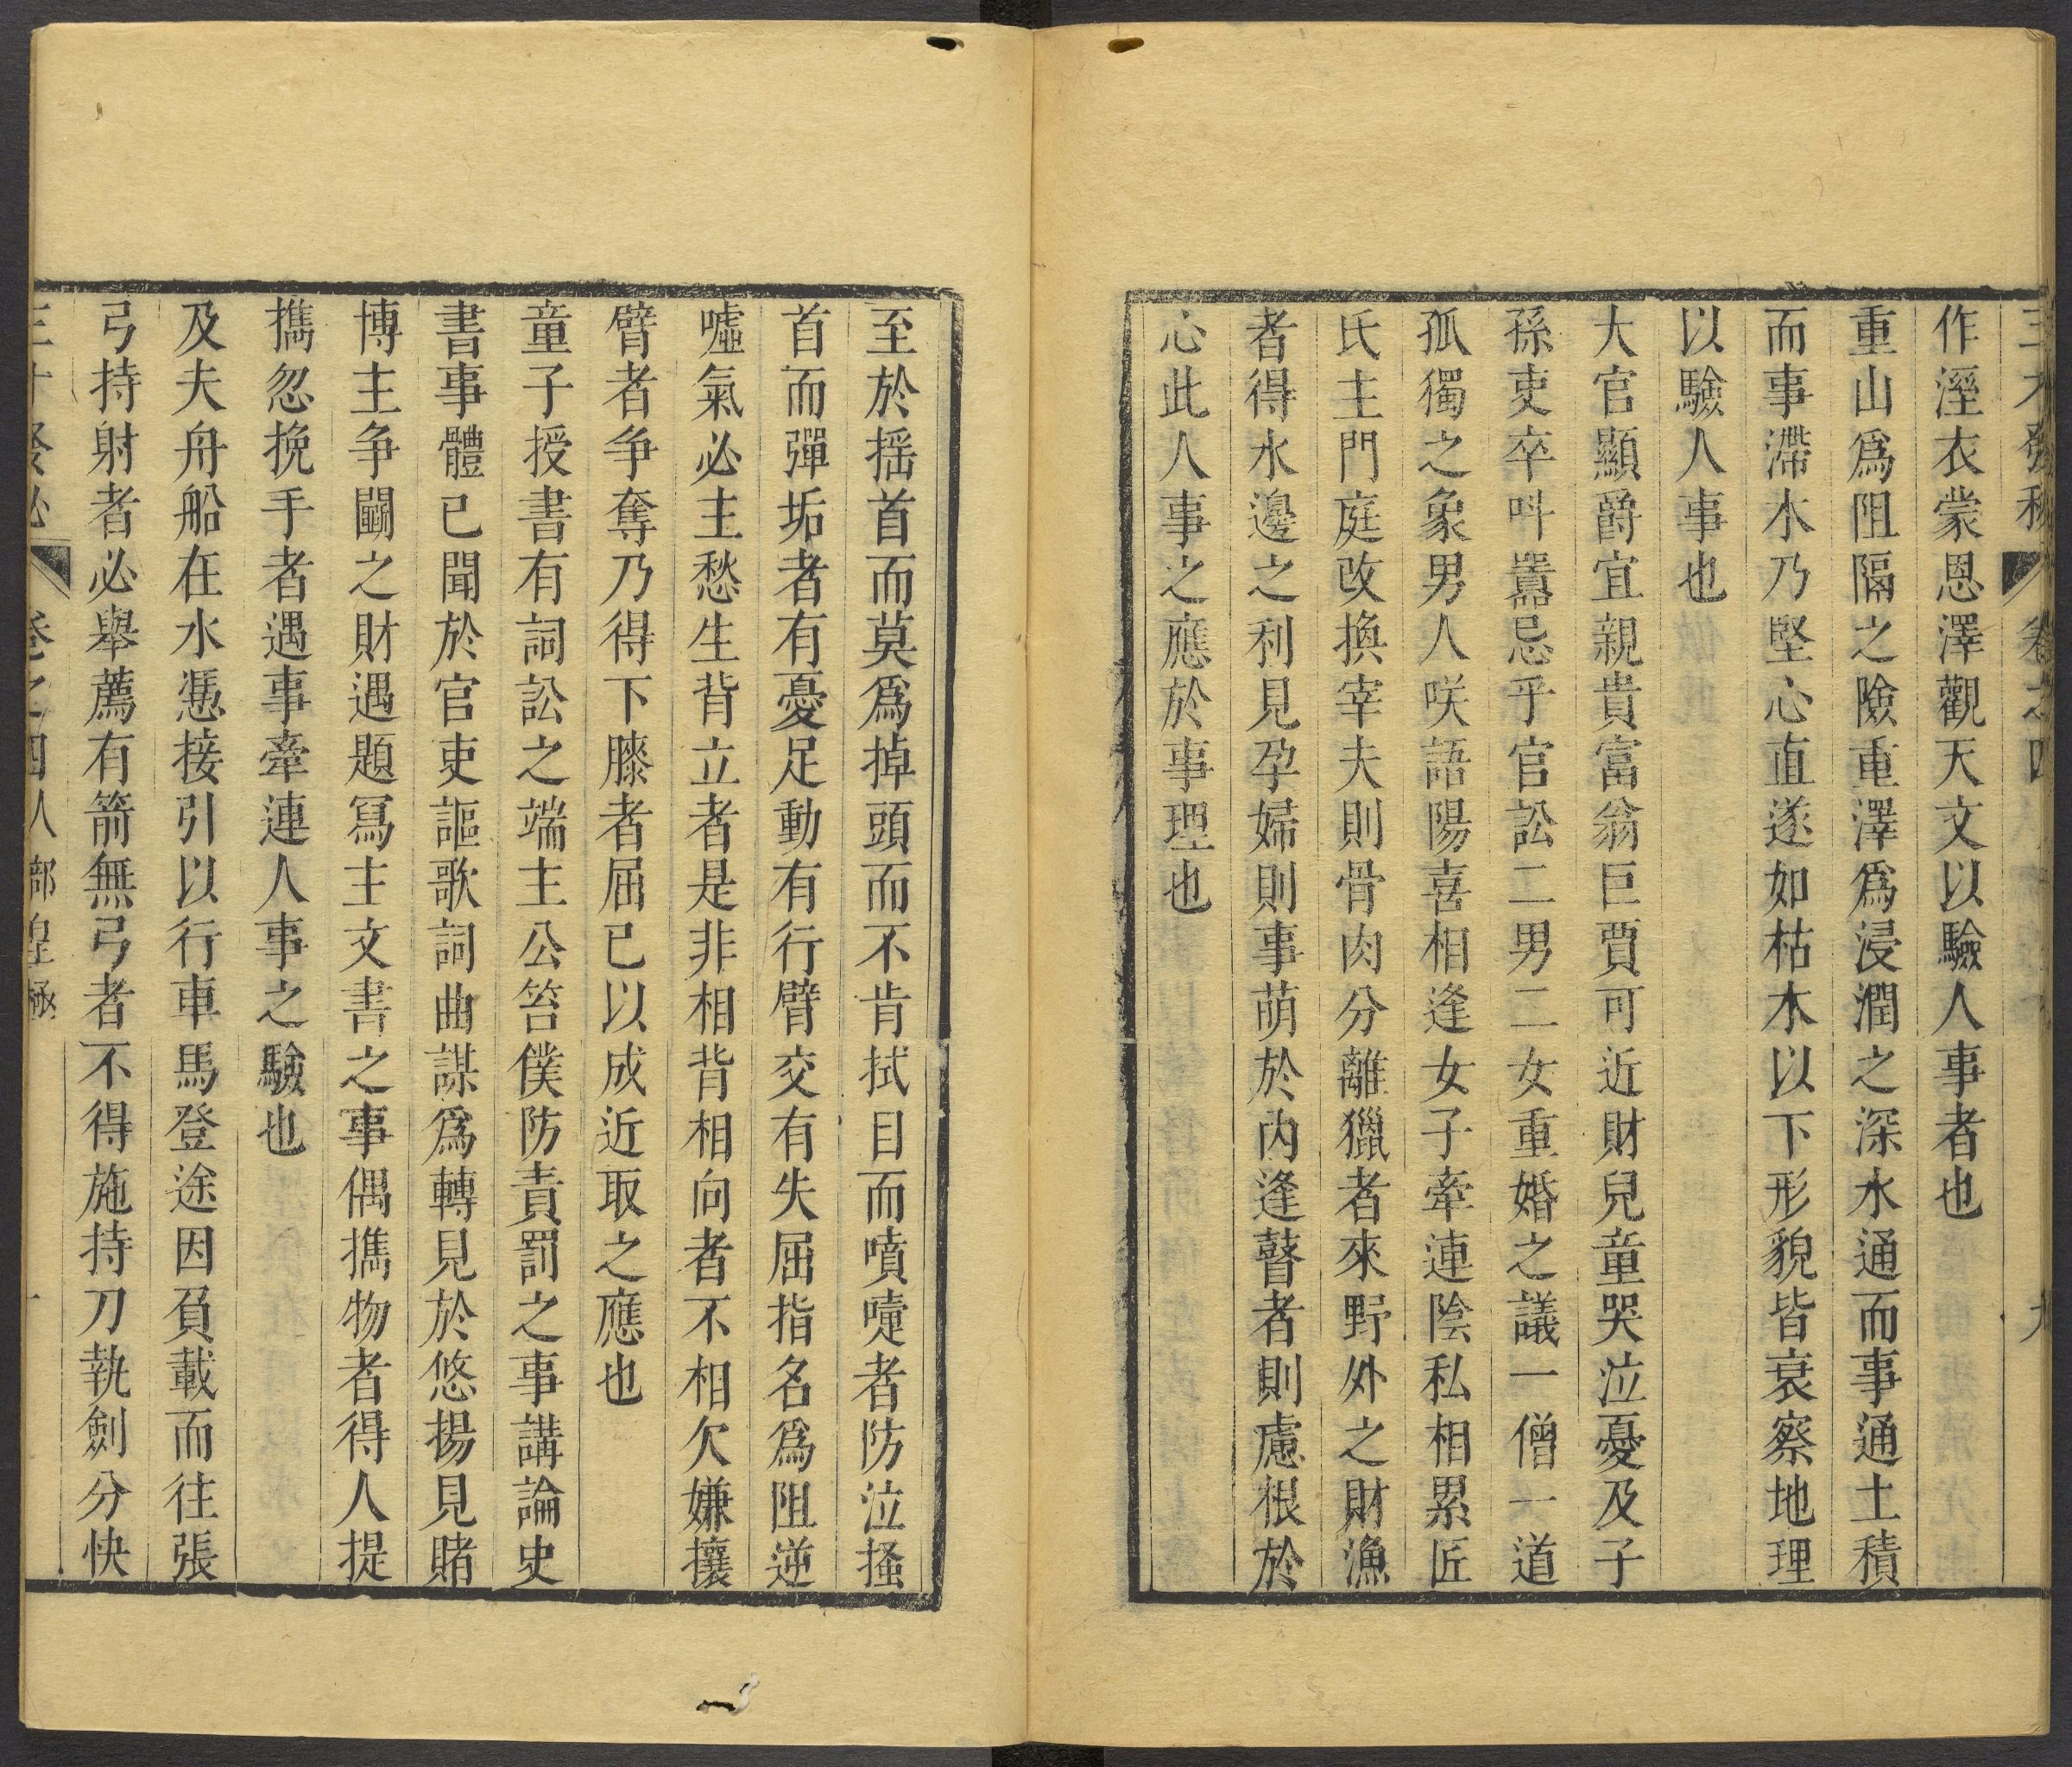 三才發秘 卷之四 九
作溼衣蒙恩澤觀天文以驗人事者也
重山爲阻隔之險重澤爲浸潤之深水通而事通土積
而事滯木乃堅心直遂如枯木以下形貌皆衰察地理
以驗人事也
大官顯爵宜親貴富翁巨賈可近財兒童哭泣憂及子
孫吏卒呌嚚忌乎官訟二男二女重婚之議一僧一道
孤獨之象男人咲語陽喜相逢女子牽連陰私相累匠
氏主門庭改換宰夫則骨肉分離獵者來野外之財漁
者得水邊之利見孕婦則事萌於內逢瞽者則慮根於
心此人事之應於事理也
至於搖首而莫爲掉頭而不肯拭目而噴嚏者防泣搔
首而彈垢者有憂足動有行臂交有失屈指名爲阻逆
噓氣必主愁生背立者是非相背相向者不相欠嫌攘
臂者争奪乃得下膝者屈已以成近取之應也
童子授書有詞訟之端主公笞僕防責罰之事講論史
書事體已聞於官吏謳歌詞曲謀爲轉見於悠揚見賭
博主争鬬之財遇題冩主文書之事偶攜物者得人提
攜忽挽手者遇事牽連人事之驗也
及夫舟船在水憑接引以行車馬登途因負載而往張
弓持射者必舉薦有箭無弓者不得施持刀執劍分快
三才發秘 卷之四人部皇極